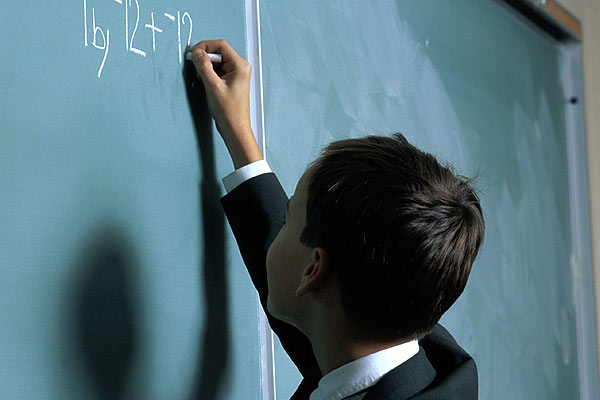 1b, ⁻12+⁻12